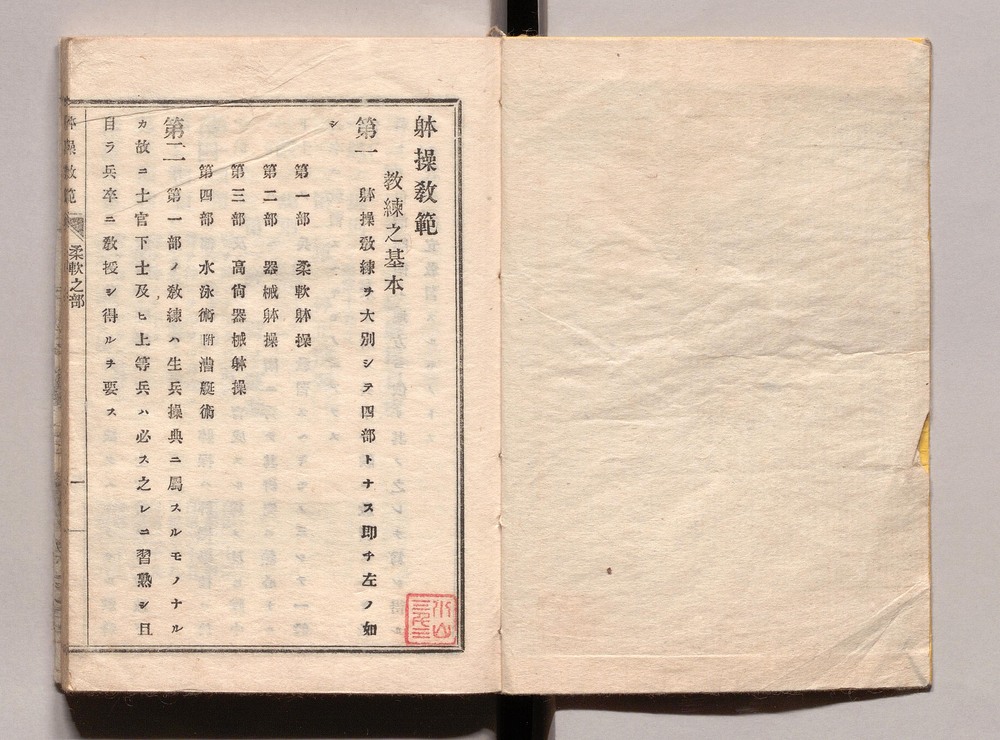 躰操敎範
敎練之基本
第一　躰操敎練ヲ大別シテ四部トナス即チ左ノ如
シ
第一部　柔軟躰操
第二部　器械躰操
第三部　高尙器械躰操
第四部　水泳術附漕艇術
第二　第一部ノ敎練ハ生兵操典ニ屬スルモノナル
カ故ニ士官下士及ヒ上等兵ハ必ス之レニ習熟シ且
自ラ兵卒ニ敎授シ得ルヲ要ス
躰操敎範　柔軟之部　一